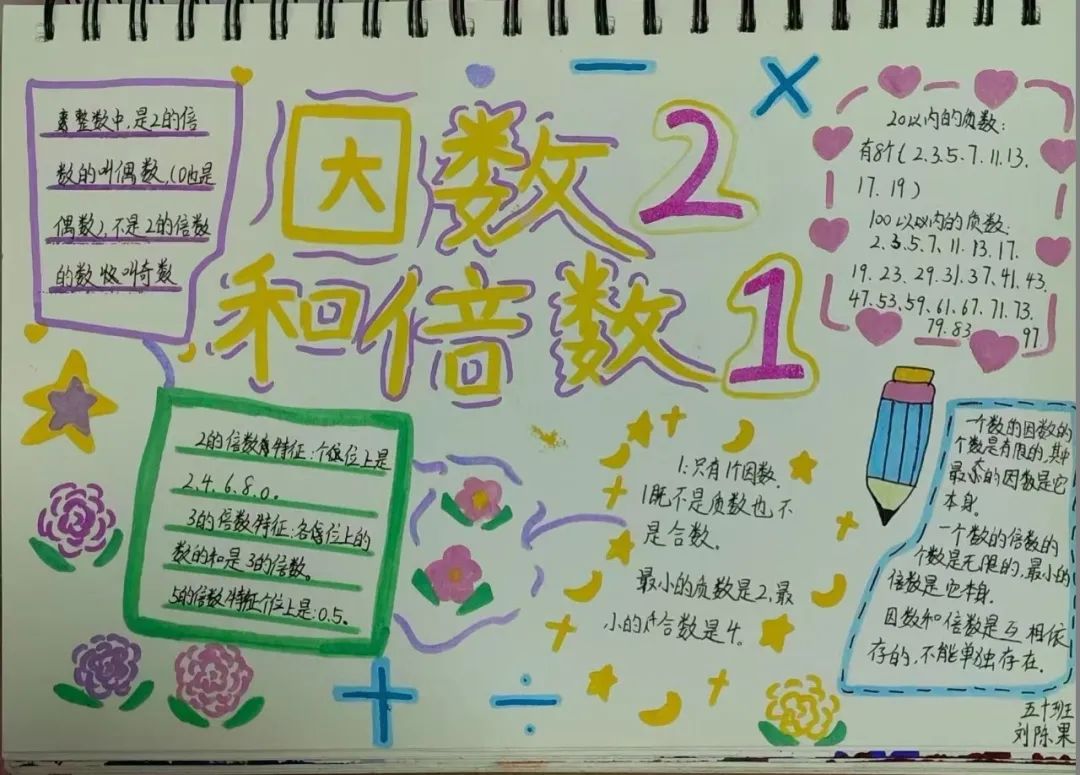 因数2
和倍数1
整数中,是2的倍
数的叫偶数,(0也是
偶数),不是2的倍数
的数叫奇数
20以内的质数:
有8个(2.3.5.7.11.13.
17.19)
100以内的质数:
2.3.5.7.11.13.17.
19.23.29.31.37.41.43.
47.53.59.61.67.71.73.
79.83
97.
2的倍数特征:个位上是
2.4.6.8.0。
3的倍数特征:各位上的
数的和是3的倍数。
5的倍数特征个位上是:0.5。
1:只有1个因数,
1既不是质数也不
是合数。
最小的质数是2,最
小的合数是4。
一个数的因数的
个数是有限的,其中
最大的因数是它
本身。
一个数的倍数的
个数是无限的,最小的
倍数是它本身.
因数和倍数是互相依
存的,不能单独存在.
五十班
刘陈果